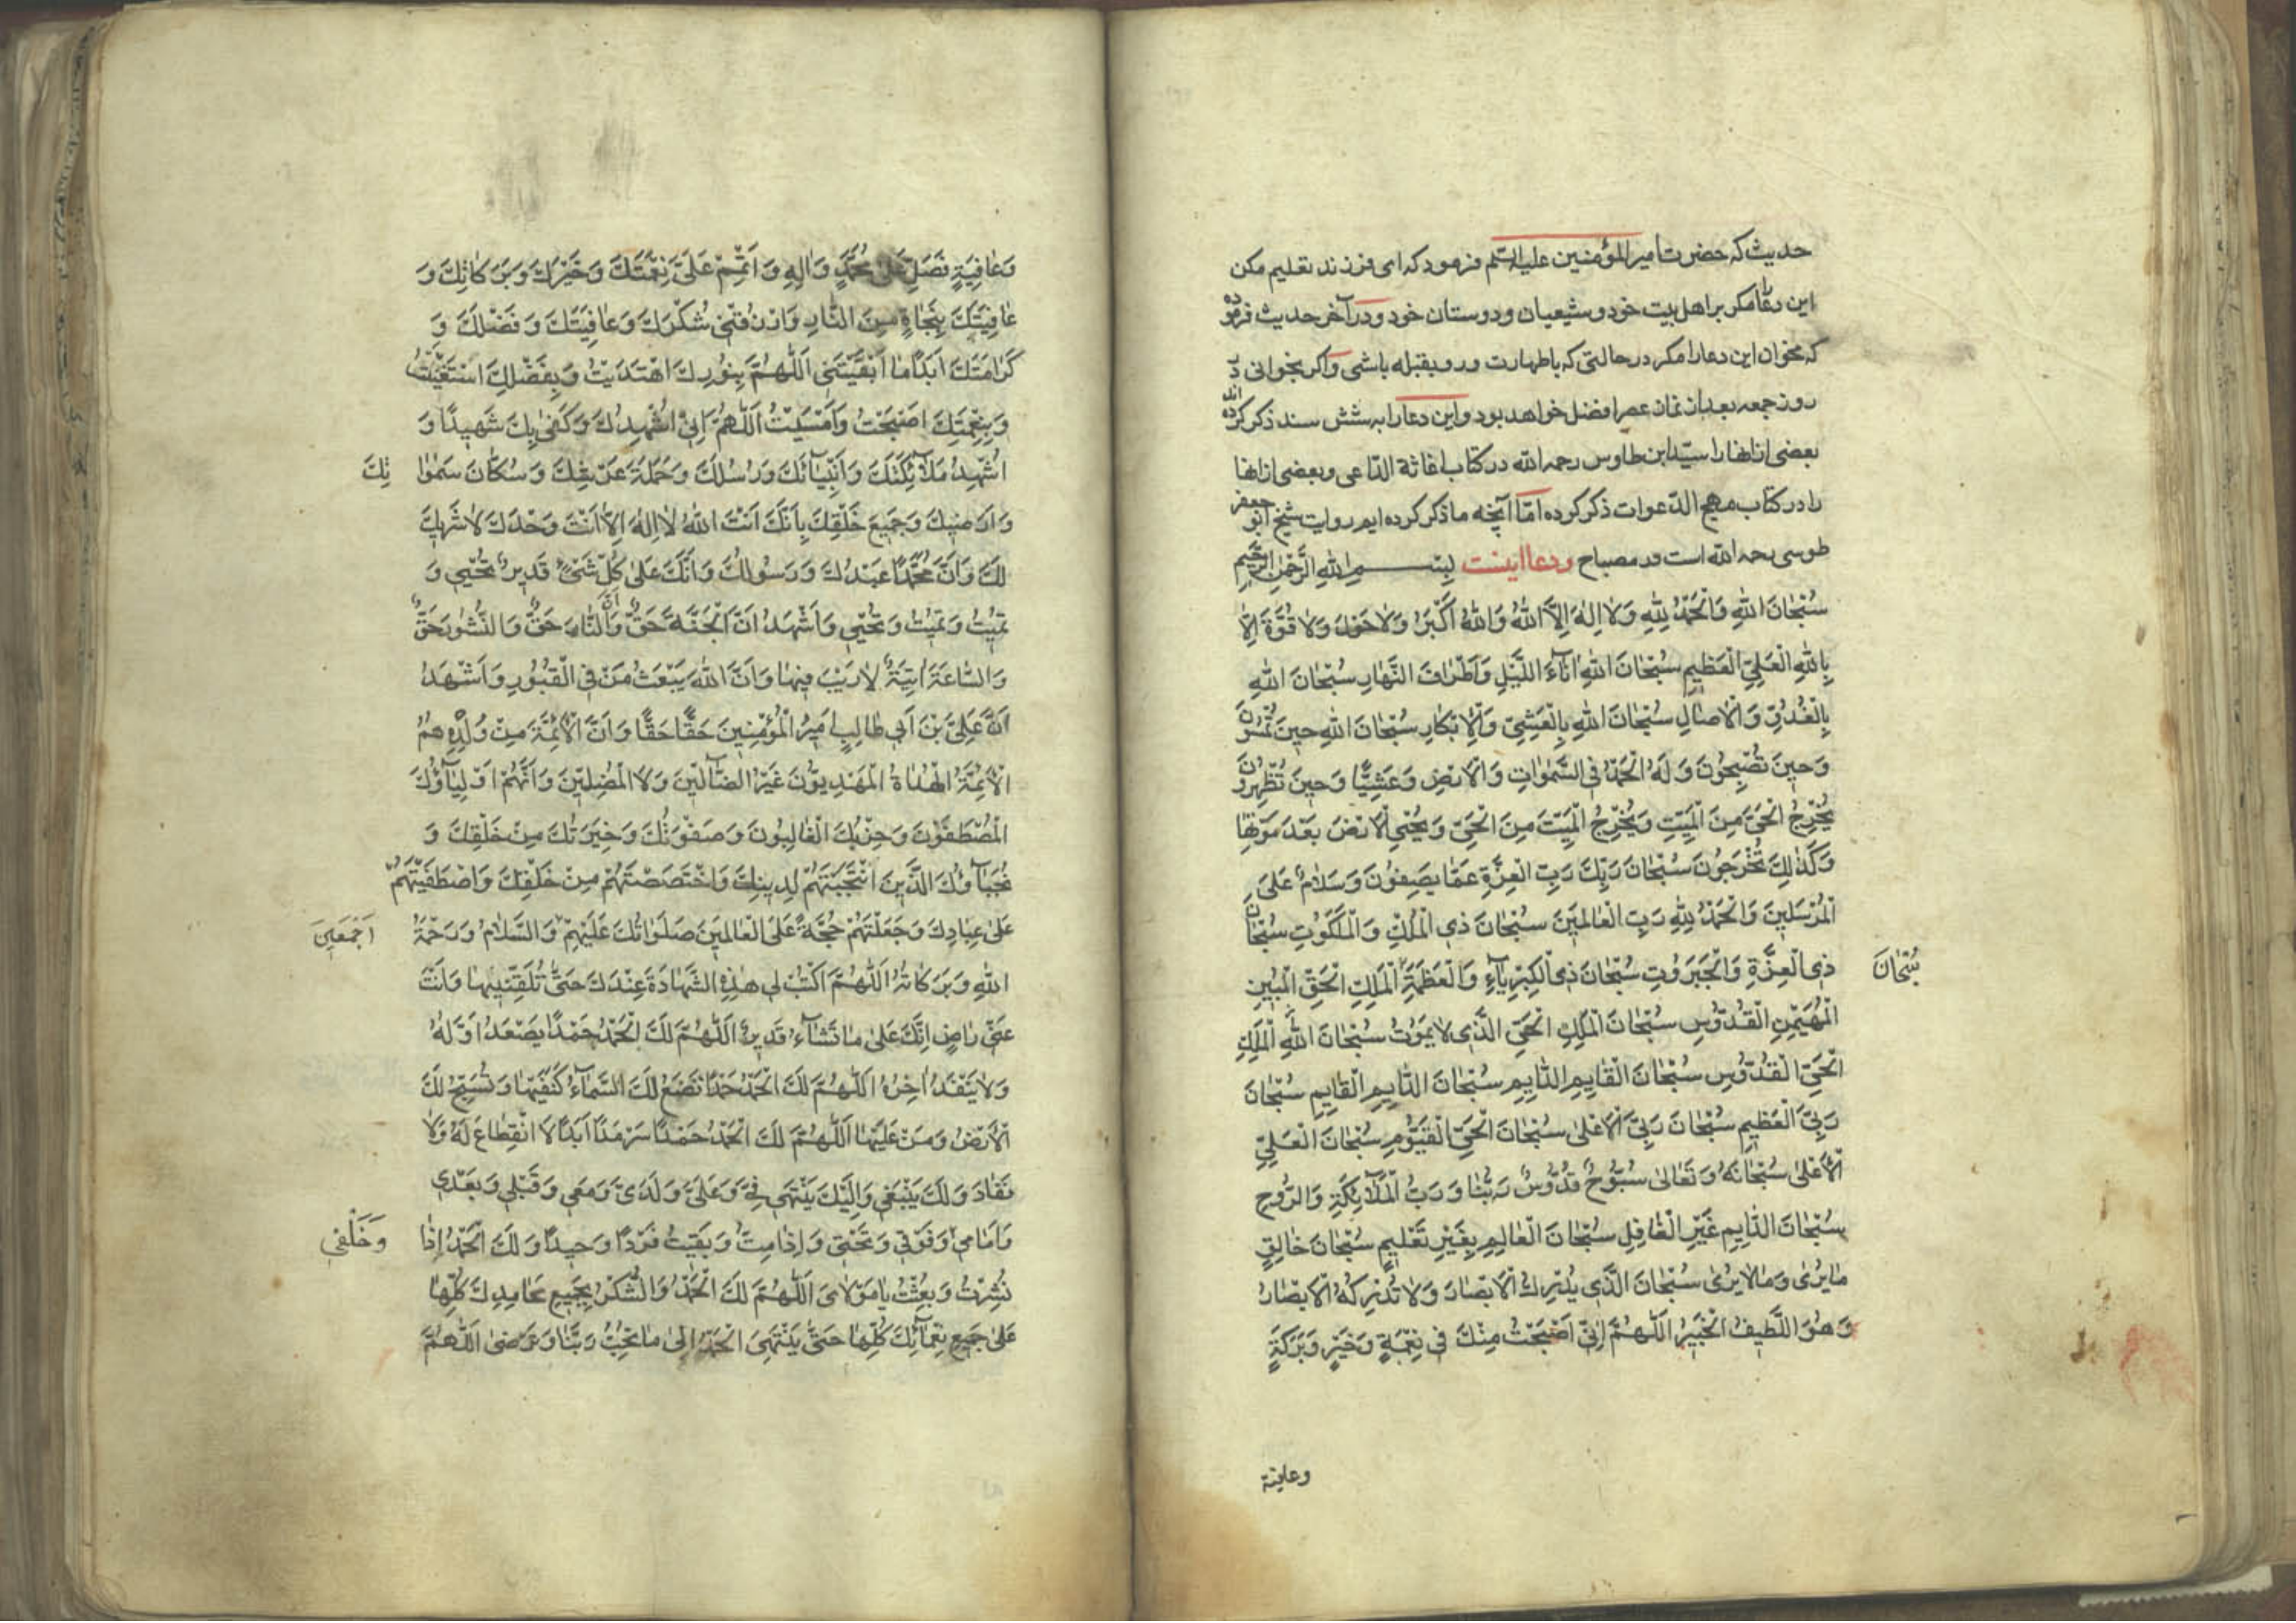 حدیث که حضرت امیرالمؤمنین علیه السلم فرمود که ای فرزند تعلیم مکن
این دعا مکر براهل بیت خود و شیعیان و دوستان خود و در آخر حدیث فرموده
که مخوان این دعا را مکر در حالتی که باطهارت و رو بقبله باشی و اکر بخوانی در
روز جمعه بعد از نماز عصر افضل خواهد بود و این دعا را به شش سند ذکر کرده اند
بعضی از انها را سید ابن طاوس رحمه الله در کتاب اغاثة الداعی و بعضی از انها
را در کتاب مهج الدعوات ذکر کرده اما آنچه ما ذکر کرده ایم روایت شیخ ابو جعفر
طوسی رحمه الله است در مصباح و دعا اینست بِسْمِ اللهِ الرَّحْمٰنِ الرَّحِيمِ
سُبْحَانَ اللهِ وَالْحَمْدُ لِلّٰهِ وَلَا اِلٰهَ اِلَّا اللهُ وَاللهُ اَكْبَرُ وَلَا حَوْلَ وَلَا قُوَّةَ اِلَّا
بِاللهِ الْعَلِيِّ الْعَظِيمِ سُبْحَانَ اللهِ اٰنَاءَ اللَّيْلِ وَاَطْرَافَ النَّهَارِ سُبْحَانَ اللهِ
بِالْغُدُوِّ وَالْاٰصَالِ سُبْحَانَ اللهِ بِالْعَشِيِّ وَالْاِبْكَارِ سُبْحَانَ اللهِ حِينَ تُمْسُونَ
وَحِينَ تُصْبِحُونَ وَلَهُ الْحَمْدُ فِي السَّمٰوَاتِ وَالْاَرْضِ وَعَشِيًّا وَحِينَ تُظْهِرُونَ
يُخْرِجُ الْحَيَّ مِنَ الْمَيِّتِ وَيُخْرِجُ الْمَيِّتَ مِنَ الْحَيِّ وَيُحْيِي الْاَرْضَ بَعْدَ مَوْتِهَا
وَكَذٰلِكَ تُخْرَجُونَ سُبْحَانَ رَبِّكَ رَبِّ الْعِزَّةِ عَمَّا يَصِفُونَ وَسَلَامٌ عَلَى
الْمُرْسَلِينَ وَالْحَمْدُ لِلّٰهِ رَبِّ الْعَالَمِينَ سُبْحَانَ ذِي الْمُلْكِ وَالْمَلَكُوتِ سُبْحَانَ
ذِي الْعِزَّةِ وَالْجَبَرُوتِ سُبْحَانَ ذِي الْكِبْرِيَاءِ وَالْعَظَمَةِ الْمَلِكِ الْحَقِّ الْمُبِينِ
سُبْحَانَ
الْمُهَيْمِنِ الْقُدُّوسِ سُبْحَانَ الْمَلِكِ الْحَيِّ الَّذِي لَا يَمُوتُ سُبْحَانَ اللهِ الْمَلِكِ
الْحَيِّ الْقُدُّوسِ سُبْحَانَ الْقَايِمِ الدَّايِمِ سُبْحَانَ الدَّايِمِ الْقَايِمِ سُبْحَانَ
رَبِّيَ الْعَظِيمِ سُبْحَانَ رَبِّيَ الْاَعْلٰى سُبْحَانَ الْحَيِّ الْقَيُّومِ سُبْحَانَ الْعَلِيِّ
الْاَعْلٰى سُبْحَانَهُ وَتَعَالٰى سُبُّوحٌ قُدُّوسٌ رَبُّنَا وَرَبُّ الْمَلَائِكَةِ وَالرُّوحِ
سُبْحَانَ الدَّايِمِ غَيْرِ الْغَافِلِ سُبْحَانَ الْعَالِمِ بِغَيْرِ تَعْلِيمٍ سُبْحَانَ خَالِقِ
مَا يُرٰى وَمَا لَا يُرٰى سُبْحَانَ الَّذِي يُدْرِكُ الْاَبْصَارَ وَلَا تُدْرِكُهُ الْاَبْصَارُ
وَهُوَ اللَّطِيفُ الْخَبِيرُ اَللّٰهُمَّ اِنِّي اَصْبَحْتُ مِنْكَ فِي نِعْمَةٍ وَخَيْرٍ وَبَرَكَةٍ
وعافیة
وَعَافِيَةٍ فَصَلِّ عَلٰى مُحَمَّدٍ وَاٰلِهِ وَاَتْمِمْ عَلَيَّ نِعْمَتَكَ وَخَيْرَكَ وَبَرَكَاتِكَ وَ
عَافِيَتَكَ بِنَجَاةٍ مِنَ النَّارِ وَارْزُقْنِي شُكْرَكَ وَعَافِيَتَكَ وَفَضْلَكَ وَ
كَرَامَتَكَ اَبَدًا مَا اَبْقَيْتَنِي اَللّٰهُمَّ بِنُورِكَ اهْتَدَيْتُ وَبِفَضْلِكَ اسْتَغْنَيْتُ
وَبِنِعْمَتِكَ اَصْبَحْتُ وَاَمْسَيْتُ اَللّٰهُمَّ اِنِّي اُشْهِدُكَ وَكَفٰى بِكَ شَهِيدًا وَ
اُشْهِدُ مَلَائِكَتَكَ وَاَنْبِيَائَكَ وَرُسُلَكَ وَحَمَلَةَ عَرْشِكَ وَسُكَّانَ سَمٰوَا تِكَ
وَاَرَضِيكَ وَجَمِيعَ خَلْقِكَ بِاَنَّكَ اَنْتَ اللهُ لَا اِلٰهَ اِلَّا اَنْتَ وَحْدَكَ لَا شَرِيكَ
لَكَ وَاَنَّ مُحَمَّدًا عَبْدُكَ وَرَسُولُكَ وَاَنَّكَ عَلٰى كُلِّ شَيْءٍ قَدِيرٌ تُحْيِي وَ
تُمِيتُ وَتُمِيتُ وَتُحْيِي وَاَشْهَدُ اَنَّ الْجَنَّةَ حَقٌّ وَاَنَّ النَّارَ حَقٌّ وَالنُّشُورَ حَقٌّ
وَالسَّاعَةَ اٰتِيَةٌ لَا رَيْبَ فِيهَا وَاَنَّ اللهَ يَبْعَثُ مَنْ فِي الْقُبُورِ وَاَشْهَدُ
اَنَّ عَلِيَّ بْنَ اَبِي طَالِبٍ اَمِيرُ الْمُؤْمِنِينَ حَقًّا حَقًّا وَاَنَّ الْاَئِمَّةَ مِنْ وُلْدِهِ هُمُ
الْاَئِمَّةُ الْهُدَاةُ الْمَهْدِيُّونَ غَيْرُ الضَّالِّينَ وَلَا الْمُضِلِّينَ وَاَنَّهُمْ اَوْلِيَاؤُكَ
الْمُصْطَفَوْنَ وَحِزْبُكَ الْغَالِبُونَ وَصَفْوَتُكَ وَخِيَرَتُكَ مِنْ خَلْقِكَ وَ
نُجَبَاؤُكَ الَّذِينَ انْتَجَبْتَهُمْ لِدِينِكَ وَاخْتَصَصْتَهُمْ مِنْ خَلْقِكَ وَاصْطَفَيْتَهُمْ
عَلٰى عِبَادِكَ وَجَعَلْتَهُمْ حُجَّةً عَلَى الْعَالَمِينَ صَلَوَاتُكَ عَلَيْهِمْ وَالسَّلَامُ وَرَحْمَةُ
اَجْمَعِينَ
اللهِ وَبَرَكَاتُهُ اَللّٰهُمَّ اكْتُبْ لِي هٰذِهِ الشَّهَادَةَ عِنْدَكَ حَتّٰى تُلَقِّنَنِيهَا وَاَنْتَ
عَنِّي رَاضٍ اِنَّكَ عَلٰى مَا تَشَاءُ قَدِيرٌ اَللّٰهُمَّ لَكَ الْحَمْدُ حَمْدًا يَصْعَدُ اَوَّلُهُ
وَلَا يَنْفَدُ اٰخِرُهُ اَللّٰهُمَّ لَكَ الْحَمْدُ حَمْدًا تَضَعُ لَكَ السَّمَاءُ كَنَفَيْهَا وَتُسَبِّحُ لَكَ
الْاَرْضُ وَمَنْ عَلَيْهَا اَللّٰهُمَّ لَكَ الْحَمْدُ حَمْدًا سَرْمَدًا اَبَدًا لَا انْقِطَاعَ لَهُ وَلَا
نَفَادَ وَلَكَ يَنْبَغِي وَاِلَيْكَ يَنْتَهِي فِيَّ وَعَلَيَّ وَلَدَيَّ وَمَعِي وَقَبْلِي وَبَعْدِي
وَاَمَامِي وَفَوْقِي وَتَحْتِي وَاِذَا مِتُّ وَبَقِيتُ فَرْدًا وَحِيدًا وَلَكَ الْحَمْدُ اِذَا
وَخَلْفِي
نُشِرْتُ وَبُعِثْتُ يَا مَوْلَايَ اَللّٰهُمَّ لَكَ الْحَمْدُ وَالشُّكْرُ بِجَمِيعِ مَحَامِدِكَ كُلِّهَا
عَلٰى جَمِيعِ نَعْمَائِكَ كُلِّهَا حَتّٰى يَنْتَهِيَ الْحَمْدُ اِلٰى مَا تُحِبُّ رَبَّنَا وَتَرْضٰى اَللّٰهُمَّ